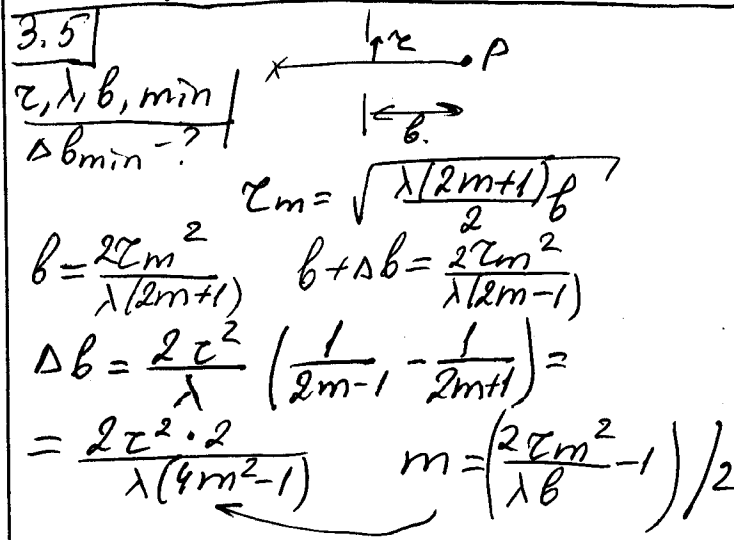 3.5
τ P
τ, λ, b, min
b.
Δb_min - ?
τ_m = √(λ(2m+1)/2 b)
b = 2τ_m²/λ(2m+1) b+Δb = 2τ_m²/λ(2m-1)
Δb = 2τ²/λ (1/2m-1 - 1/2m+1) =
= 2τ²·2/λ(4m²-1) m = (2τ_m²/λb - 1)/2